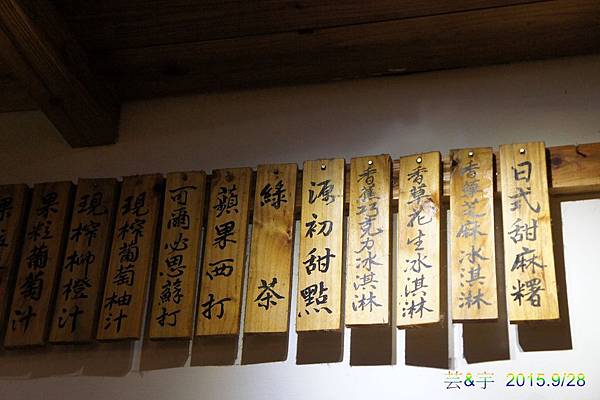 日式甜麻糬
香草芝麻冰淇淋
香草花生冰淇淋
香蕉巧克力冰淇淋
源初甜點
綠茶
蘋果西打
可爾必思蘇打
現榨葡萄柚汁
現榨柳橙汁
果粒葡萄汁
芸&宇 2015.9/28